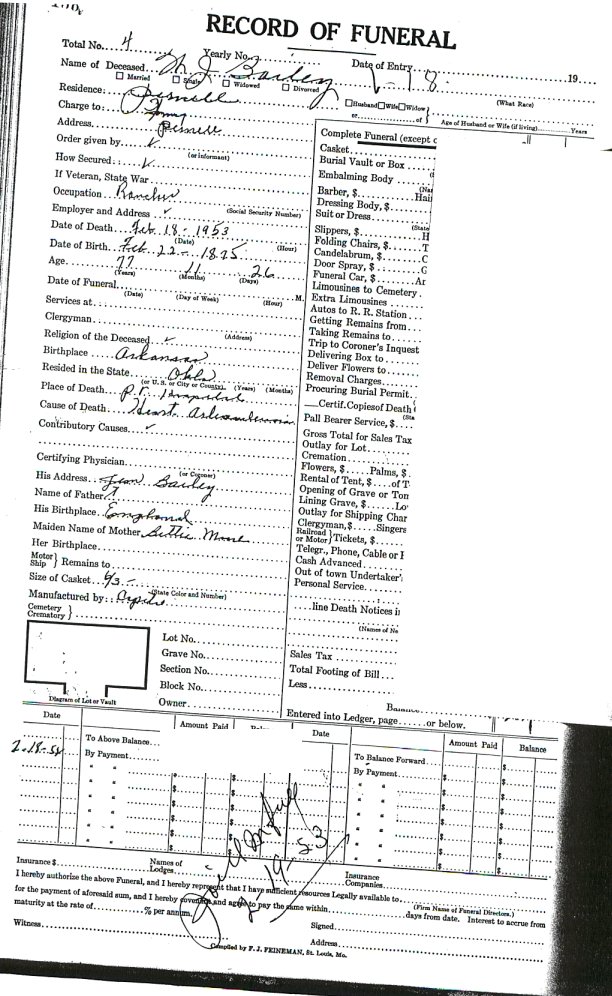 RECORD OF FUNERAL
Total No. 4 Yearly No. Date of Entry 1-18 19
Name of Deceased M J Bailey
Married Single Widowed Divorced Husband Wife Widow (What Race)
or of Age of Husband or Wife (if living) Years
Residence: Pernell
Charge to:
Address Pernell
Order given by ✓
(or informant)
How Secured: ✓
If Veteran, State War
Occupation Rancher
Employer and Address ✓
(Social Security Number)
Date of Death Feb 18 - 1953
(Date) (Hour)
Date of Birth Feb 22 - 1875
Age 77 11 26
(Years) (Months) (Days)
Date of Funeral M.
(Date) (Day of Week) (Hour)
Services at
Clergyman
Religion of the Deceased ✓
(Address)
Birthplace Arkansas
Resided in the State Okla
(or U. S. or City or County) (Years) (Months)
Place of Death P.V. Hospital
Cause of Death Heart
Contributory Causes ✓
Certifying Physician
(or Coroner)
His Address
Name of Father Bailey
His Birthplace England
Maiden Name of Mother Bettie Moore
Her Birthplace
Motor Ship } Remains to
Size of Casket 6/3 -
(State Color and Number)
Manufactured by
Cemetery Crematory }
Lot No.
Grave No.
Section No.
Block No.
Owner
Diagram of Lot or Vault
Complete Funeral (except c
Casket
Burial Vault or Box
Embalming Body
(Na
Barber, $ Hai
Dressing Body, $
Suit or Dress
(State
Slippers, $ H
Folding Chairs, $ T
Candelabrum, $ C
Door Spray, $ G
Funeral Car, $ Ar
Limousines to Cemetery
Extra Limousines
Autos to R. R. Station
Getting Remains from
Taking Remains to
Trip to Coroner's Inquest
Delivering Box to
Deliver Flowers to
Removal Charges
Procuring Burial Permit
Certif. Copies of Death
(Sta
Pall Bearer Service, $
Gross Total for Sales Tax
Outlay for Lot
Cremation
Flowers, $ Palms, $
Rental of Tent, $ of T
Opening of Grave or Tom
Lining Grave, $ Lo
Outlay for Shipping Char
Clergyman, $ Singers
Railroad or Motor } Tickets, $
Telegr., Phone, Cable or F
Cash Advanced
Out of town Undertaker'
Personal Service
line Death Notices i
(Names of Ne
Sales Tax
Total Footing of Bill
Less
Balance
Entered into Ledger, page or below.
Date Amount Paid Date Amount Paid Balance
2-18-54 To Above Balance To Balance Forward
By Payment By Payment
Paid in full
2 19 53
Insurance $ Names of Lodges Insurance Companies
I hereby authorize the above Funeral, and I hereby represent that I have sufficient resources Legally available to
(Firm Name of Funeral Directors.)
for the payment of aforesaid sum, and I hereby covenant and agree to pay the same within days from date. Interest to accrue from
maturity at the rate of % per annum.
Signed
Witness
Address
Compiled by F. J. FEINEMAN, St. Louis, Mo.